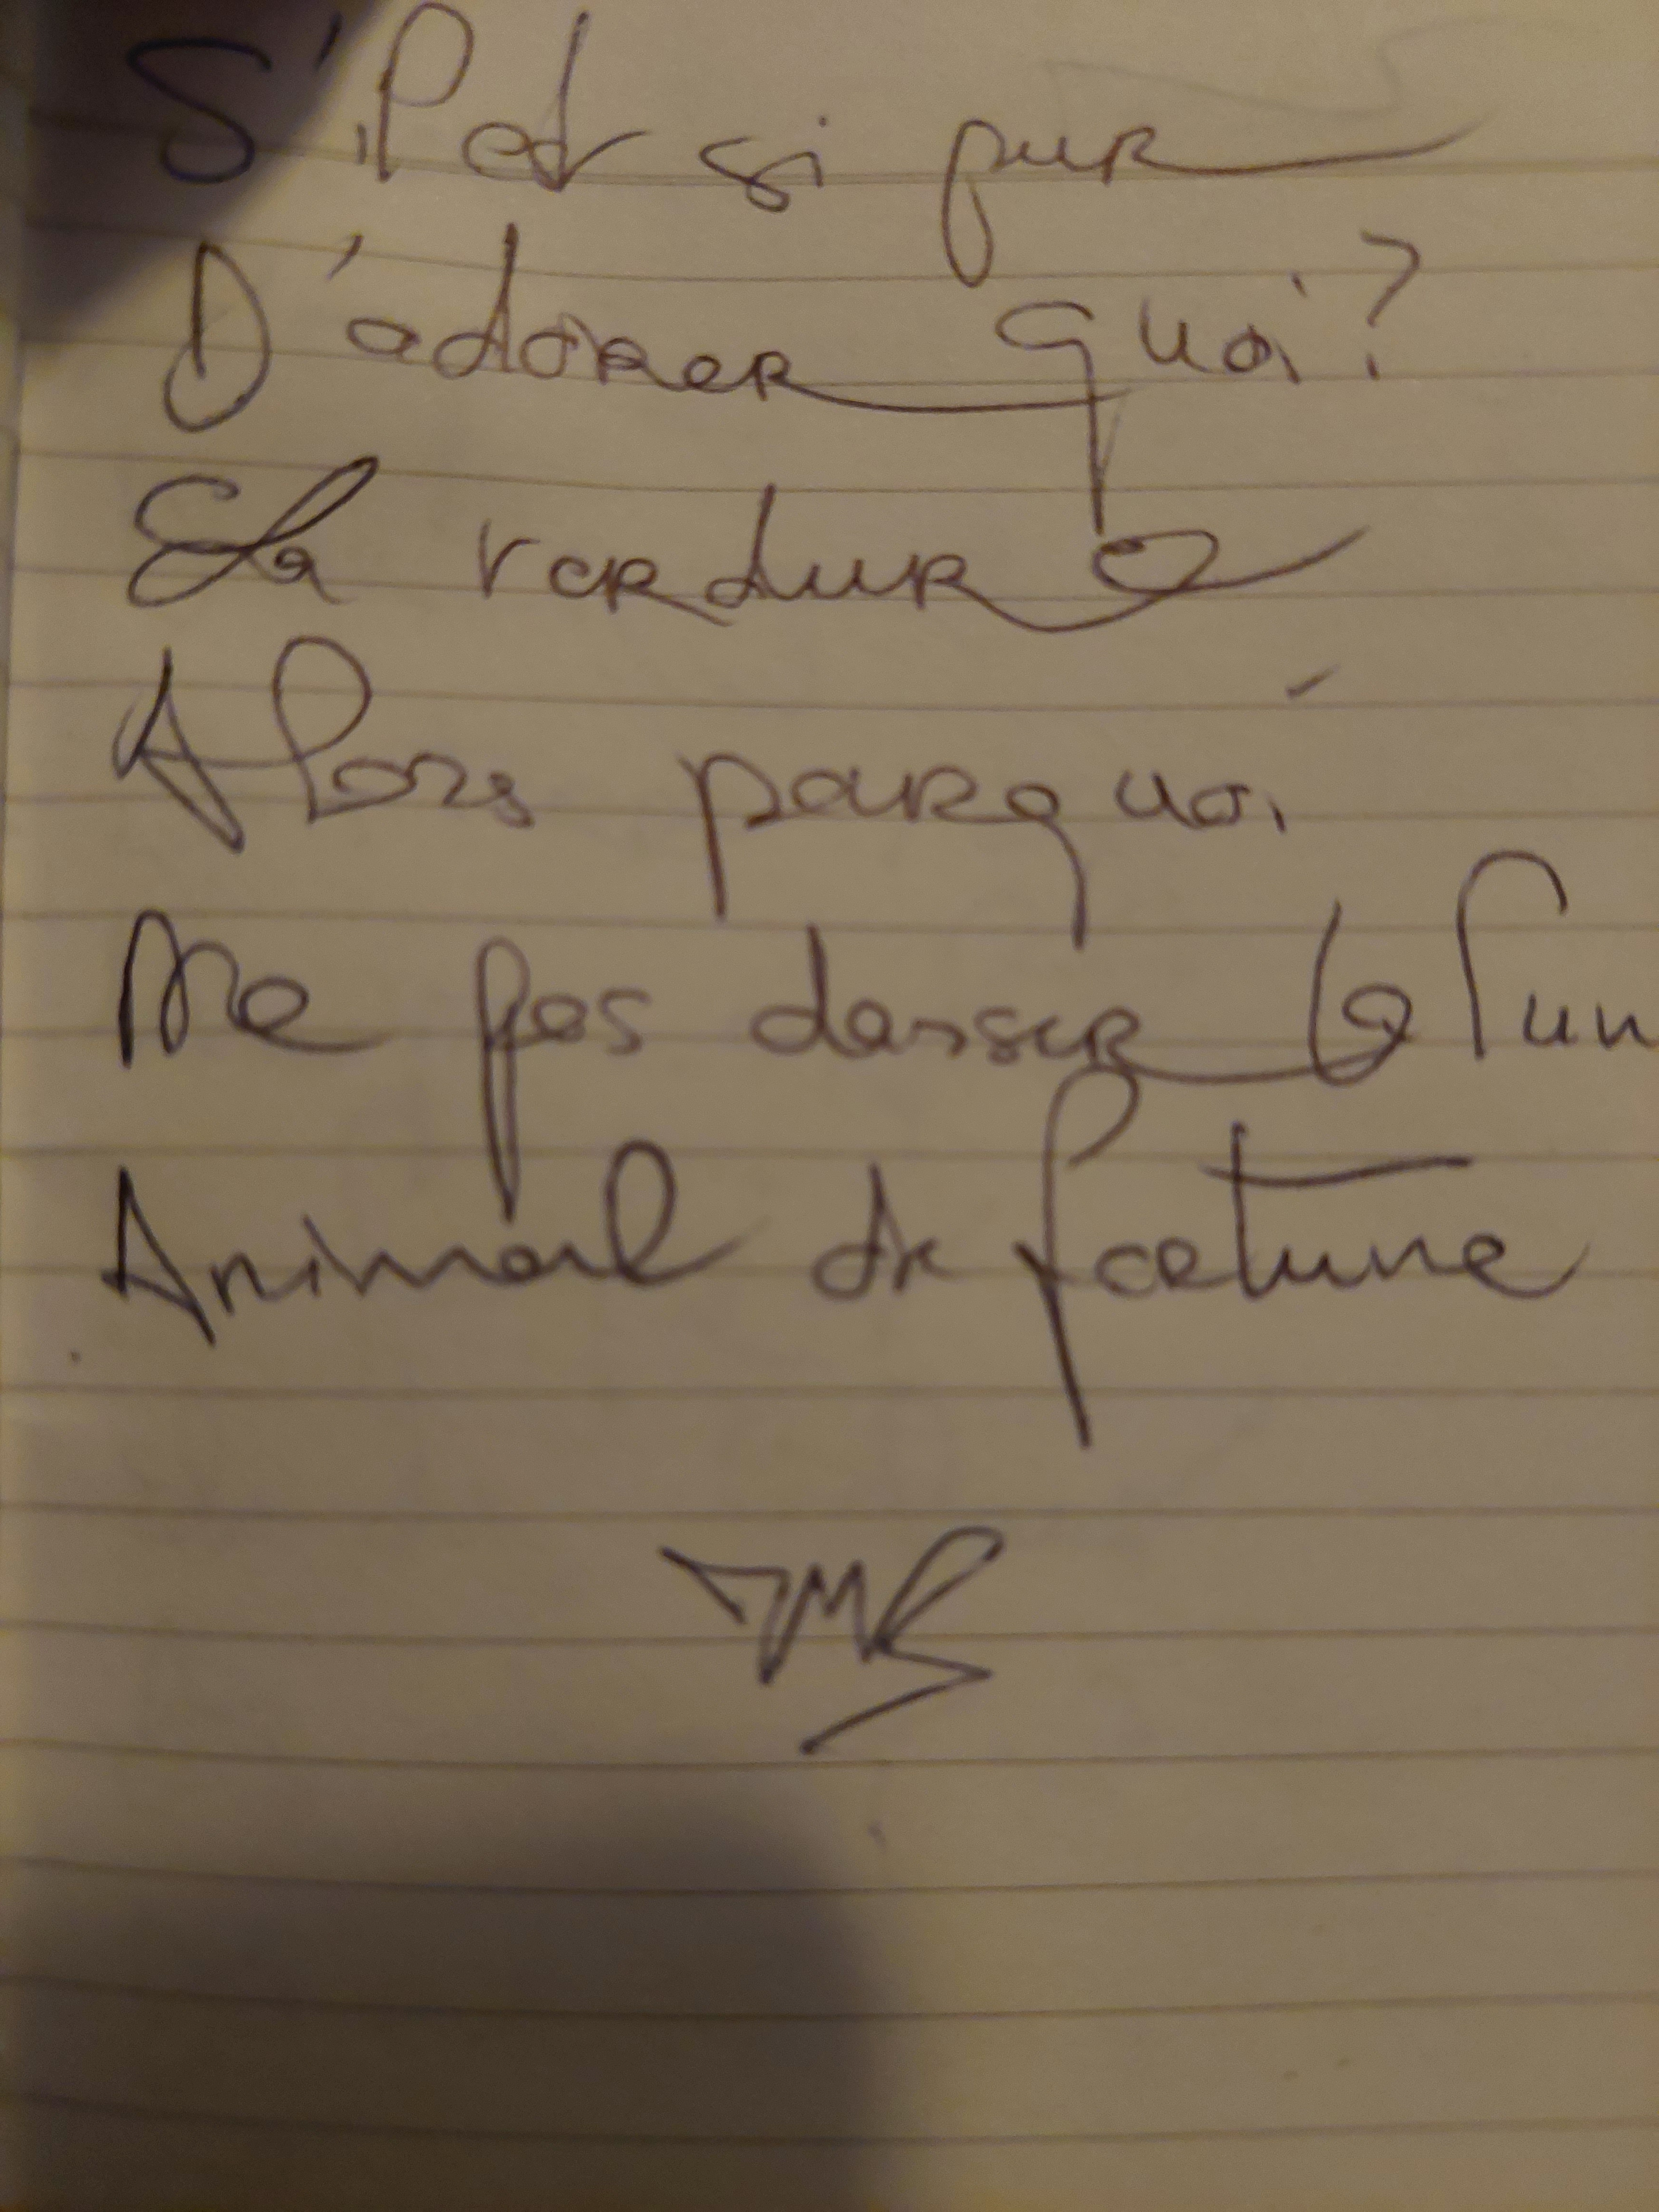 S'il est si pur
D'adorer quoi?
La verdure
Alors pourquoi
Ne pas danser le l'un
Animal de fortune